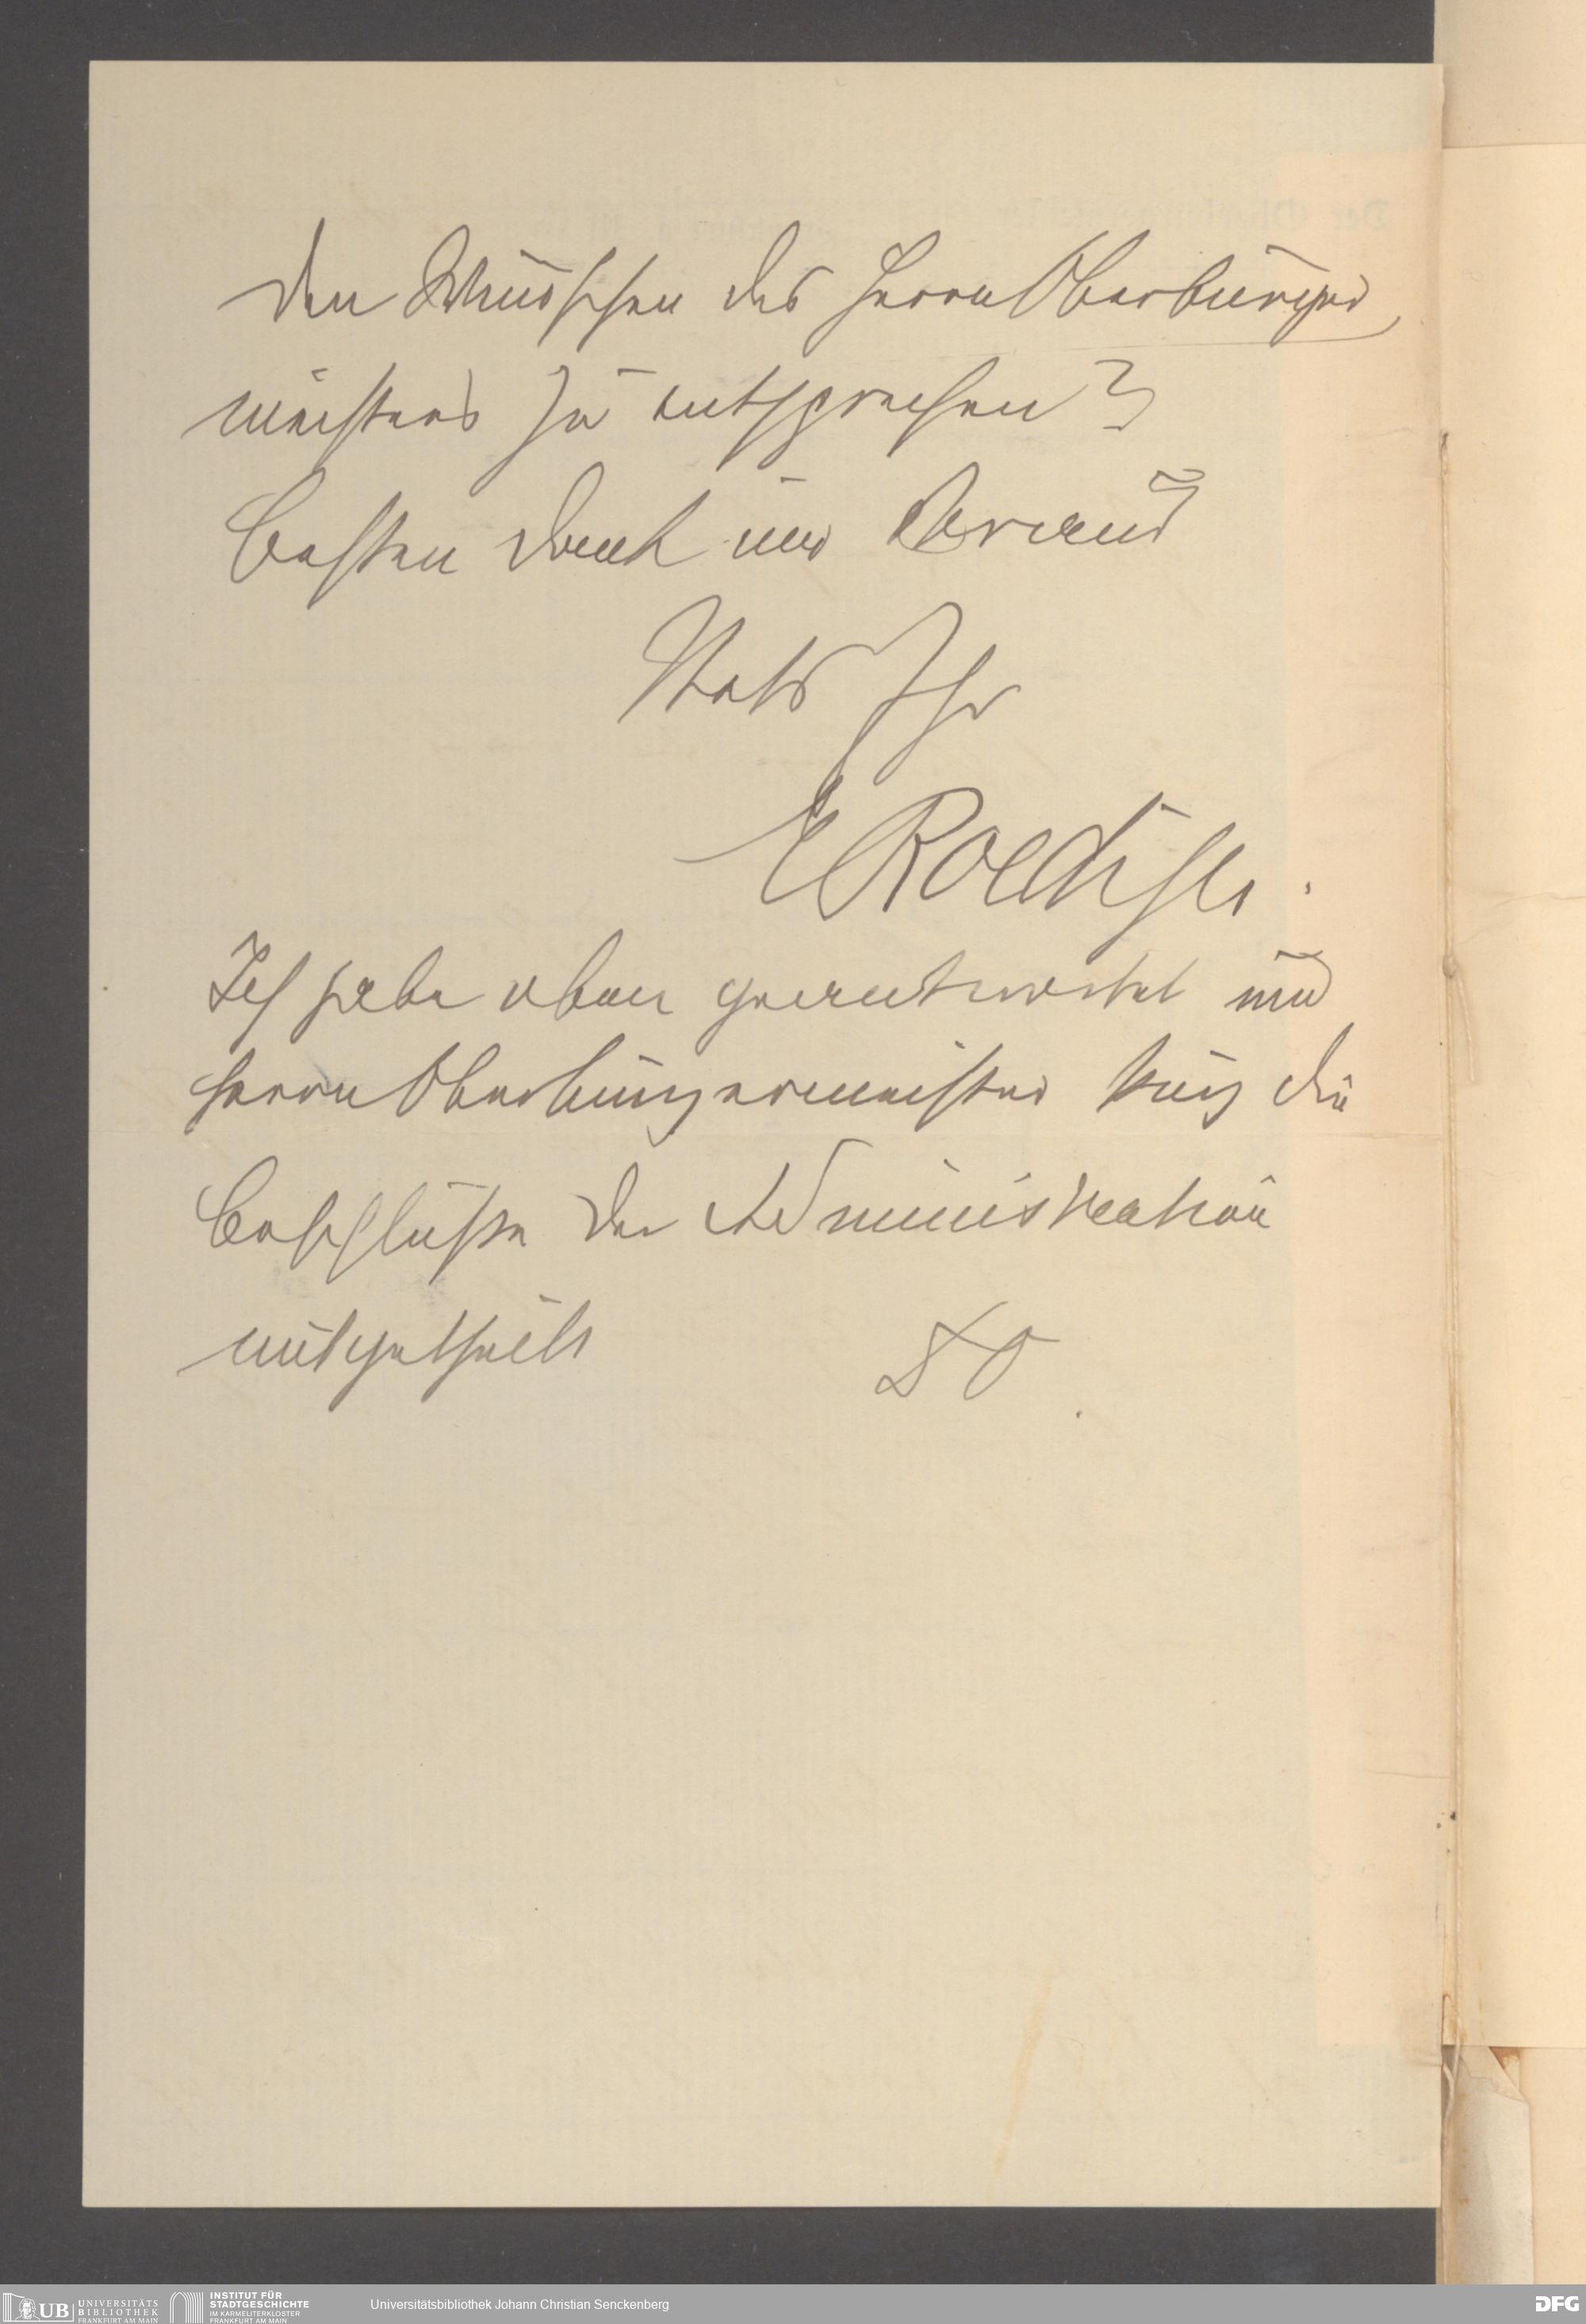 den Wünschen des Herrn Oberbürger
meisters zu entsprechen?
Besten Dank im Voraus
Stets Ihr
E Roediger.
Ich habe eben geantwortet und
Herrn Oberbürgermeister kurz die
Beschlüsse der Administration
mitgetheilt
UB UNIVERSITÄTS
BIBLIOTHEK
FRANKFURT AM MAIN
INSTITUT FÜR
STADTGESCHICHTE
IM KARMELITERKLOSTER
FRANKFURT AM MAIN
Universitätsbibliothek Johann Christian Senckenberg
DFG